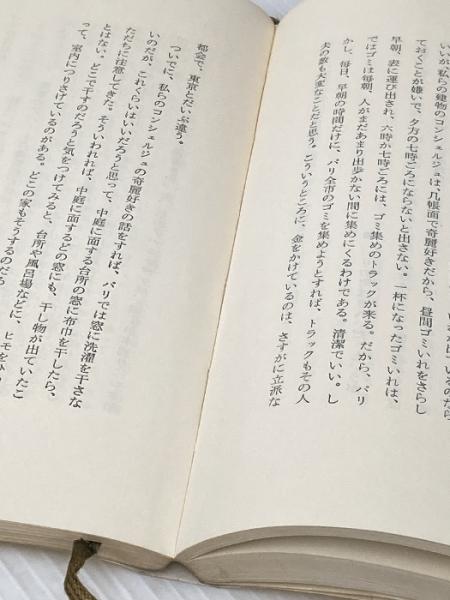 いいが、私らの建物のコンシェルジュは、几帳面で奇麗好きだから、昼間ゴミいれをさらし
ておくことが嫌いで、夕方の七時ごろにならないと出さない。一杯になったゴミいれは、
早朝、表に運び出され、六時か七時ごろには、ゴミ集めのトラックが来る。だから、パリ
ではゴミは毎朝、人がまだあまり出歩かない間に集めにくるわけである。清潔でいい。し
かし、毎日、早朝の時間だけに、パリ全市のゴミを集めようとすれば、トラックもその人
夫の数も大変なことだと思う。こういうところに、金をかけているのは、さすがに立派な
都会で、東京とだいぶ違う。
ついでに、私らのコンシェルジュの奇麗好きの話をすれば、パリでは窓に洗濯を干さな
いのだが、これくらいはいいだろうと思って、中庭に面する台所の窓に布巾を干したら、
ただちに注意してきた。そういわれれば、中庭に面するどの窓にも、干し物が出ていたこ
とはない。どこで干すのだろうと気をつけてみると、台所や風呂場などに、ヒモをひ
って、室内につりさげているのがある。どこの家もそうするのだろ